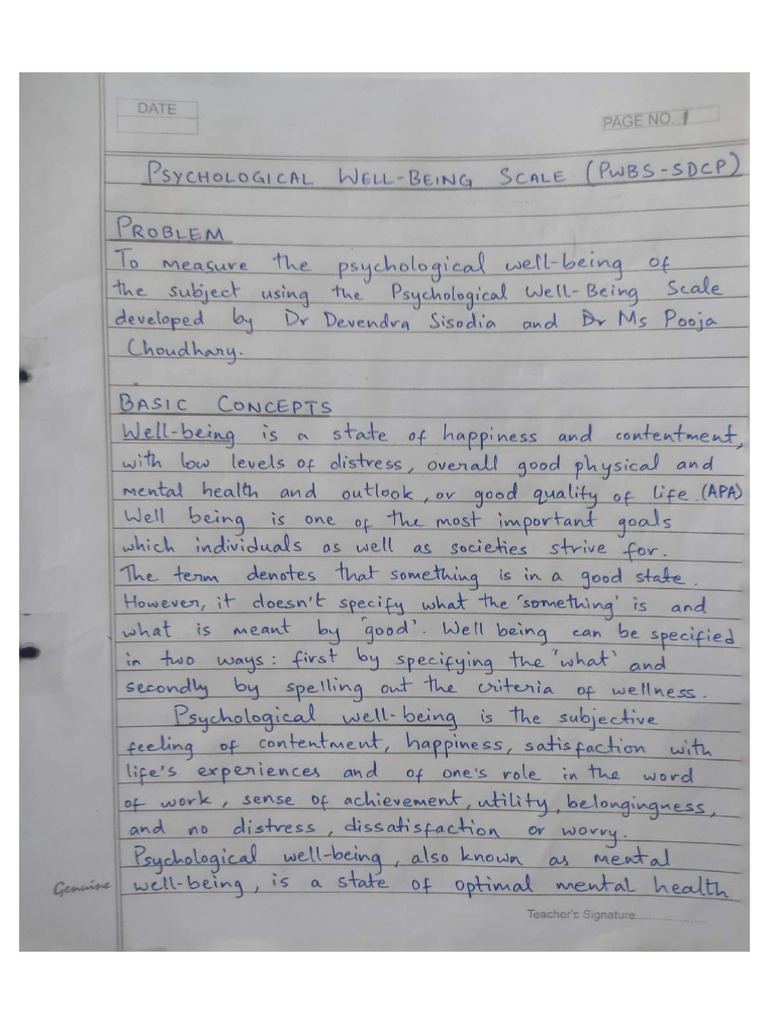 DATE
PAGE NO. 1
PSYCHOLOGICAL WELL-BEING SCALE (PWBS-SDCP)
PROBLEM
To measure the psychological well-being of
the subject using the Psychological Well-Being Scale
developed by Dr Devendra Sisodia and Dr Ms Pooja
Choudhary.
BASIC CONCEPTS
Well-being is a state of happiness and contentment,
with low levels of distress, overall good physical and
mental health and outlook, or good quality of life. (APA)
Well being is one of the most important goals
which individuals as well as societies strive for.
The term denotes that something is in a good state.
However, it doesn't specify what the 'something' is and
what is meant by 'good'. Well being can be specified
in two ways: first by specifying the 'what' and
secondly by spelling out the criteria of wellness.
Psychological well-being is the subjective
feeling of contentment, happiness, satisfaction with
life's experiences and of one's role in the word
of work, sense of achievement, utility, belongingness,
and no distress, dissatisfaction or worry.
Psychological well-being, also known as mental
well-being, is a state of optimal mental health
Genuine
Teacher's Signature..................